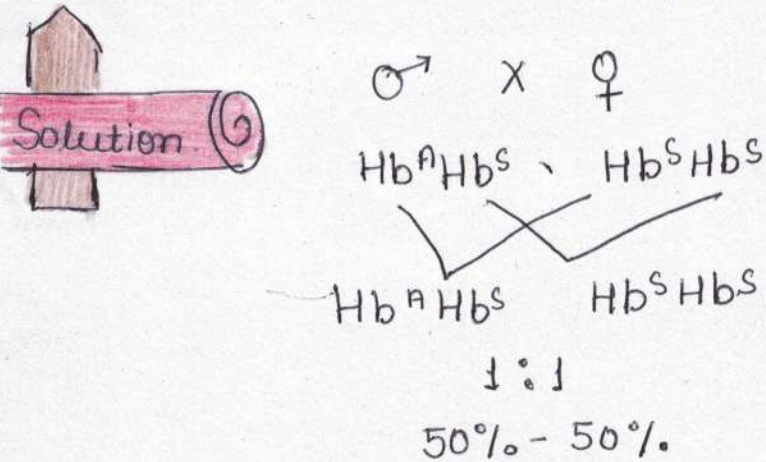 Solution
♂ X ♀
Hb^A Hb^S 、 Hb^S Hb^S
Hb^A Hb^S Hb^S Hb^S
1 : 1
50% - 50%